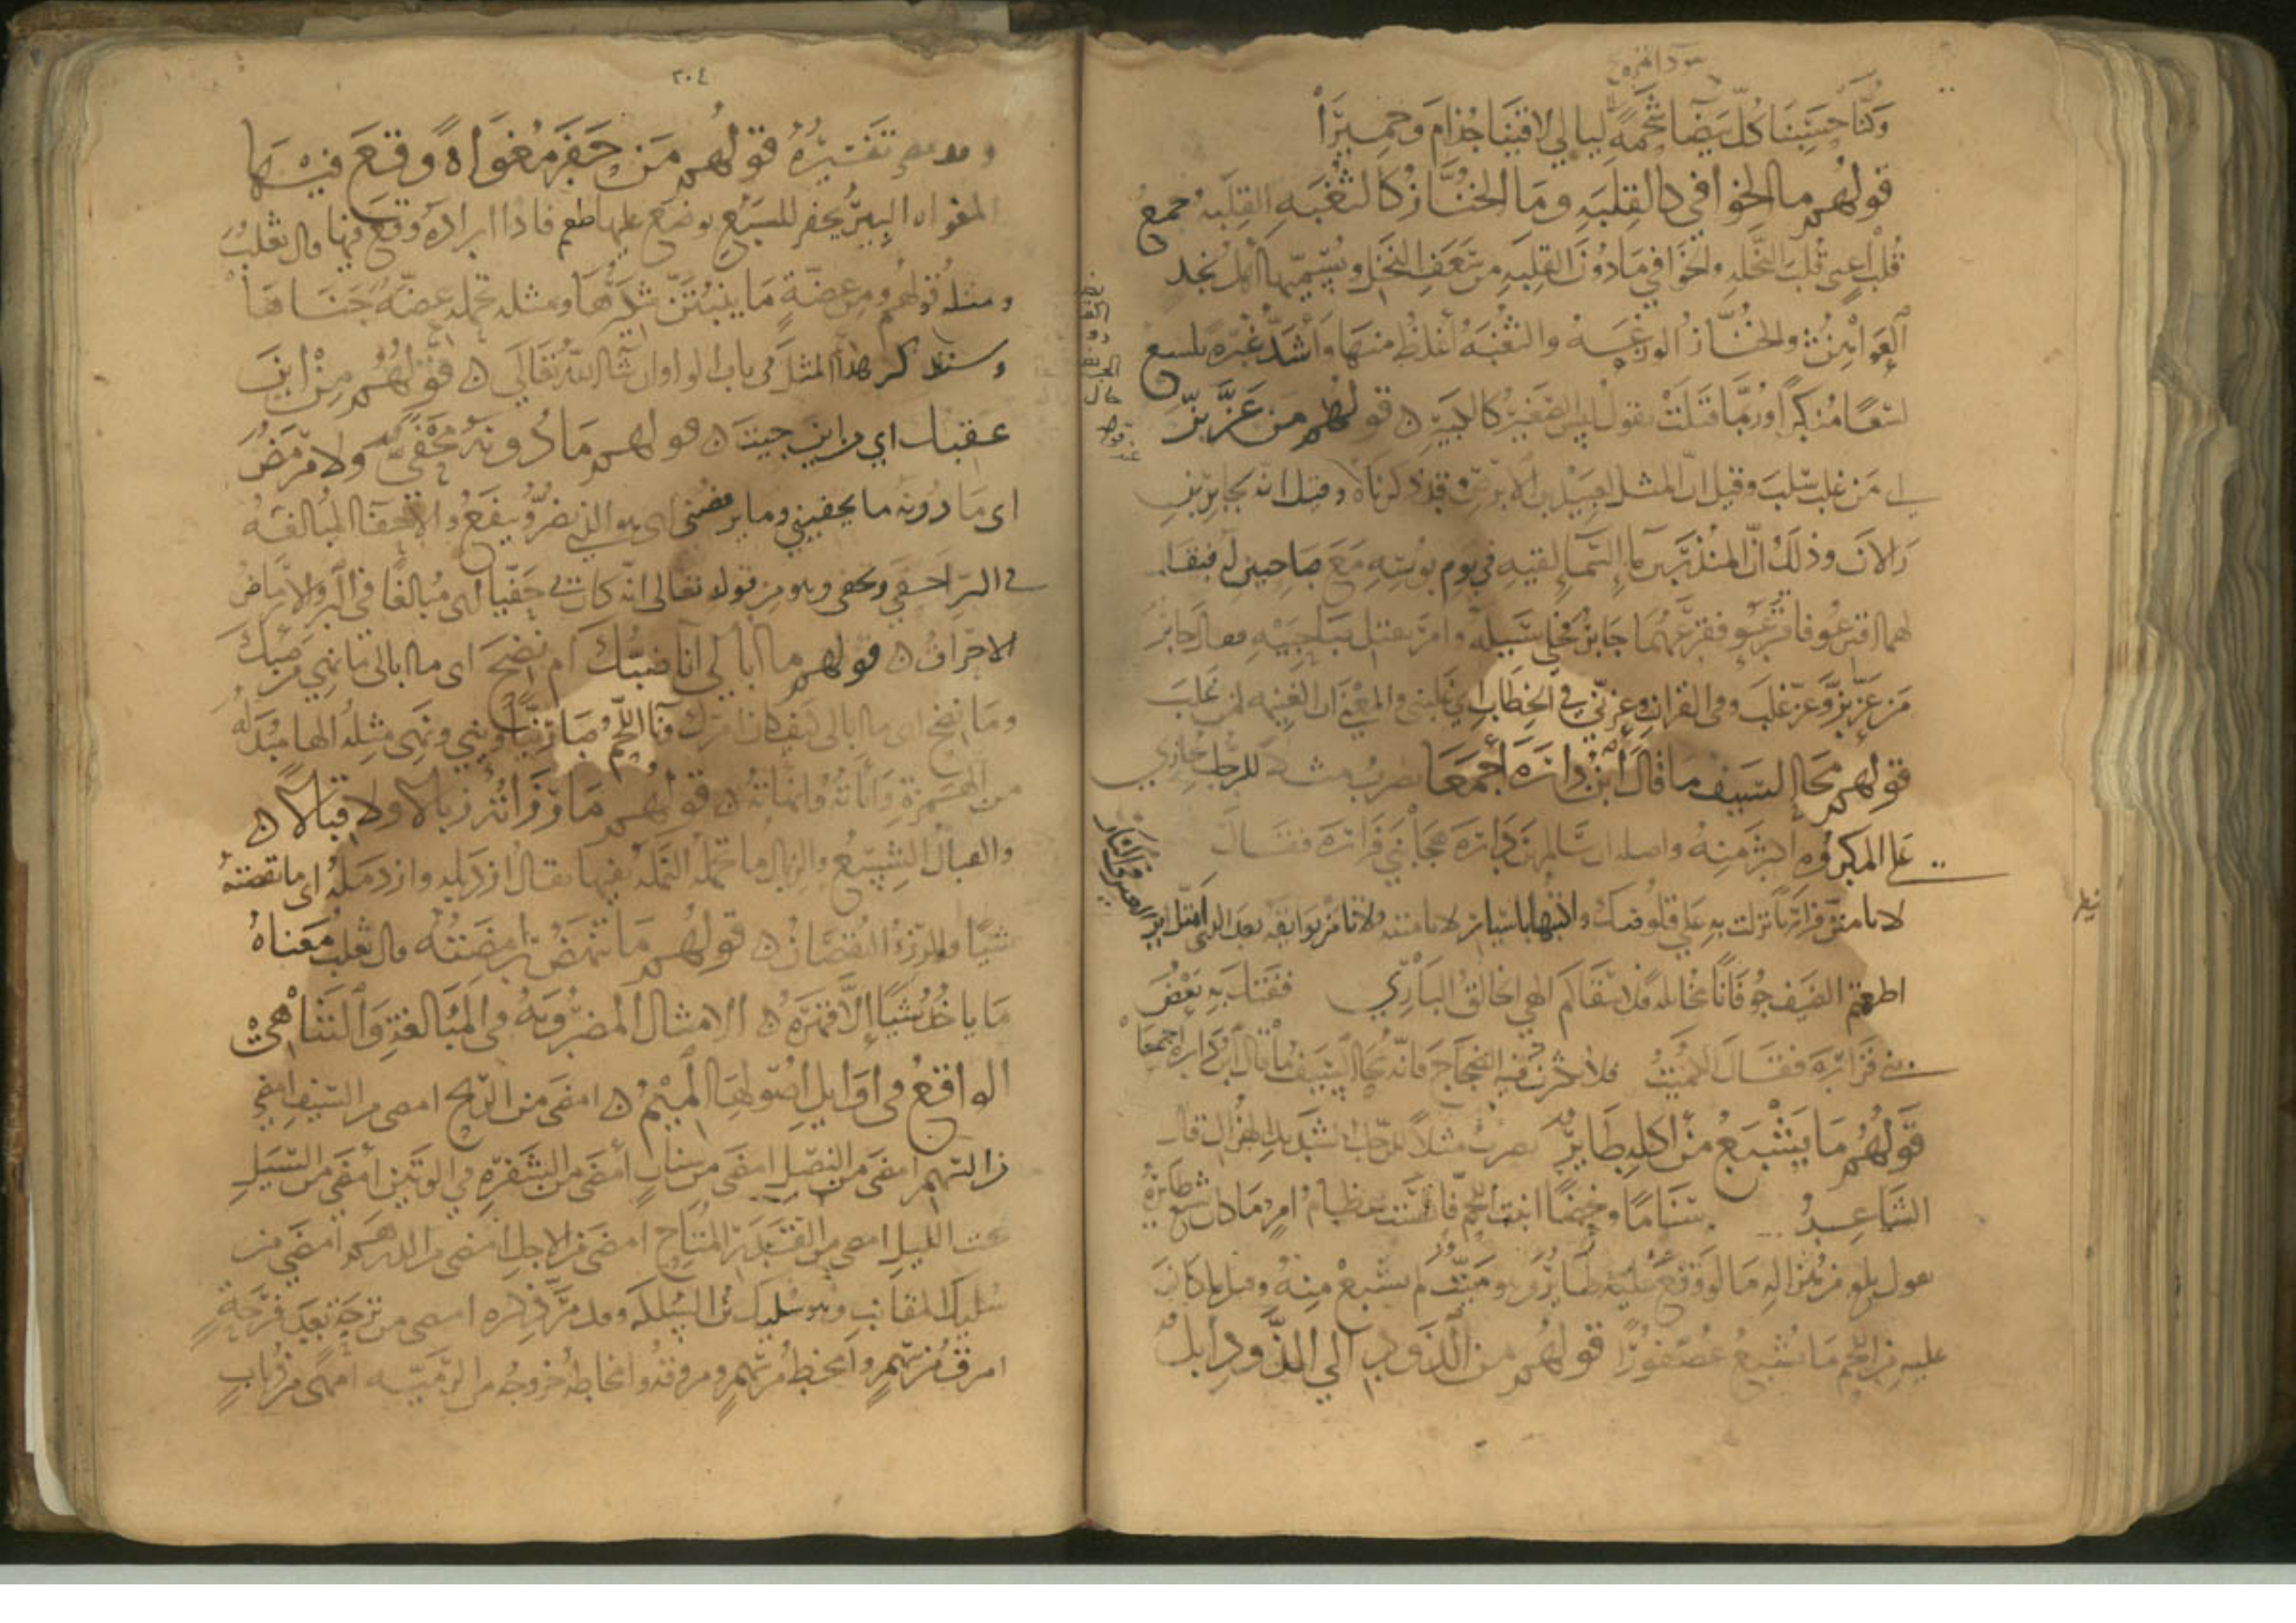 وكنا حسبنا كل بيضا شحمة ليالي لاقينا جذام وحميرا
قولهم ما الخوافي كالقلبه وما الخناز كالثغبه القلبه جمع
قلب اعني قلب النخله والخوافي ما دون القلبه من سعف النخل ويسميها اهل نجد
العواهن والخناز الوزغه والثغبه اغلظ منها واشد غبره تلسع
لسعا منكرا وربما قتلت يقول ليس الصغير كالكبير قولهم من عز بز
اي من غلب سلب وقيل ان المثل لعبيد بن الابرص وقد ذكرناه وقيل انه لجابر بن
رالان وذلك ان المنذر بن ما السما لقيه في يوم بوسه مع صاحبين له فقال
لهما اقترعوا فاقترعوا فقرعهما جابر فخلى سبيله وامر بقتل صاحبيه فقال جابر
من عز بز وعز غلب وفي القران وعزني في الخطاب اي غلبني والمعنى ان الغنيمه لمن غلب
قولهم محا السيف ما قال ابن داره اجمعا يضرب مثلا للرجل يجازي
على المكروه اكثر منه واصله ان سالم بن داره هجا بني فزاره فقال
لا تامنن فزاريا نزلت به على قلوصك واكتبها باسيار لا تامننه ولا تامن بوايقه بعد الذي امتل اير
العير في النار
اطعمتم الضيف جوفانا مخاتله فلا سقاكم الهي الخالق الباري فقتله بعض
بني فزاره فقال الكميت فلا تكثرن فيه الضجاج فانه محا السيف ما قال ابن داره اجمعا
قولهم ما يشبع من اكله طاير يضرب مثلا للرجل الشديد الهزال قال
الشاعر سناما ومحضا انبت اللحم فاكتست عظام امر ما كان يشبع طايره
يقول بلغ من هزاله ما لو وقع عليه طاير وهو ميت لم يشبع منه وقيل ما كان
عليه من اللحم ما يشبع عصفورا قولهم من الذود الي الذود ابل
٢٠٤
وقد مضى تفسيره قولهم من حفر مغواه وقع فيها
المغواه البير يحفر للسبع يوضع عليها طعم فاذا اراده وقع فيها قال ثعلب
ومثله قولهم ومن عضة ما ينبتن شكيرها ومثله تحمل عضة جناها
وسنذكر هذا المثل في باب الواو ان شا الله تعالى قولهم من اين
عقبك اي من اين جيت قولهم ما دونه محفى ولا مرمض
اي ما دونه ما يحفيني وما يرمضني اي هو الذي يضر وينفع والاحفا المبالغه
في البر احفى وتحفى وهو من قوله تعالى انه كان بي حفيا اي مبالغا في البر والارماض
الاحراق قولهم ما ابالي انا ضبك ام نضج اي ما ابالي ما نيي من ضبك
وما نضج اي ما ابالي كيف كان امرك وناا اللحم صار نيا وينيي ونهى مثله الها مبدله
من الهمزة وانأته وانهأته قولهم ما رزاته زبالا ولا قبالا
والقبال الشسع والزبال ما تحمل النمله بفيها يقال ازدبله وازدمله اي ما نقصته
شيا والمرزؤ النقصان قولهم ما تنهض رابضته قال ثعلب معناه
ما ياخذ شيا الا قهره الامثال المضروبة في المبالغة والتناهي
الواقع في اوايل اصولها الميم امضى من الريح امضى من السيف امضى
من السهم امضى من النصل امضى من سنان امضى من الشفرة في الوتين امضى من السيل
تحت الليل امضى من القدر المتاح امضى من الاجل امضى من الدرهم امضى من
سليك المقانب وهو سليك بن السلكه وقد مر ذكره امضى من ترحة بعد فرحة
امرق من سهم وامخط من سهم ومروقه وانخاطه خروجه من الرميه امهى من ذباب